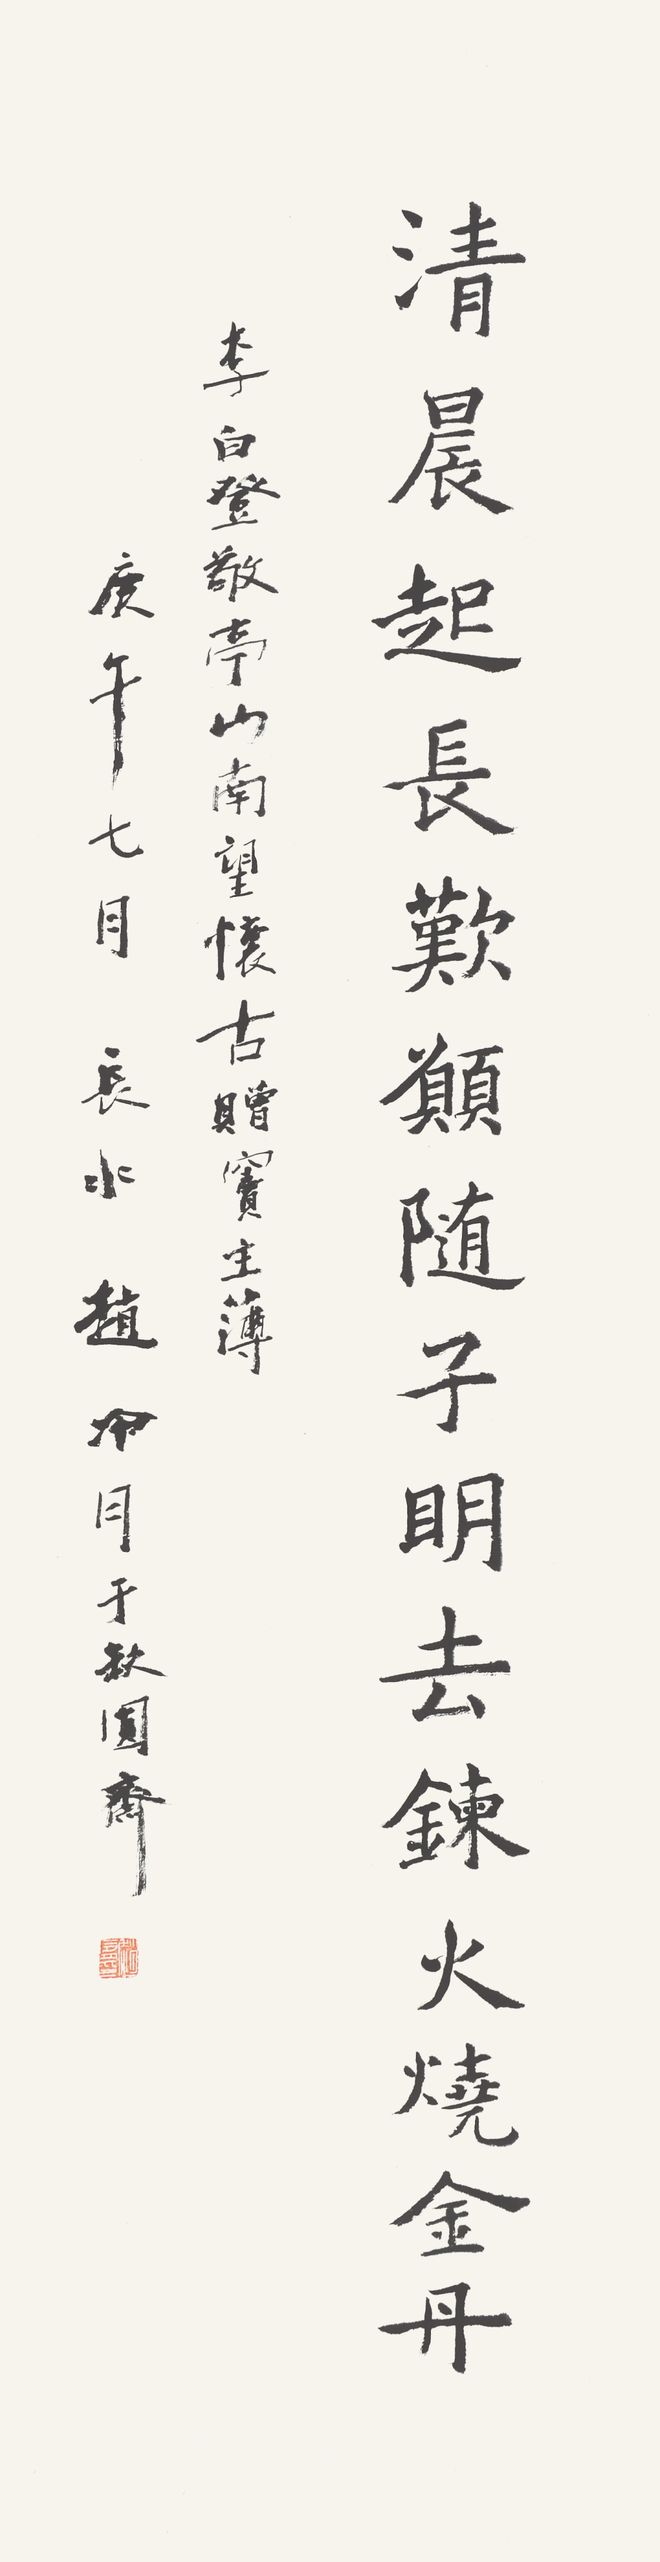 清晨起長歎願随子明去鍊火燒金丹
李白登敬亭山南望懷古贈竇主薄
庚午七月 長水 趙冷月于缺圓齋